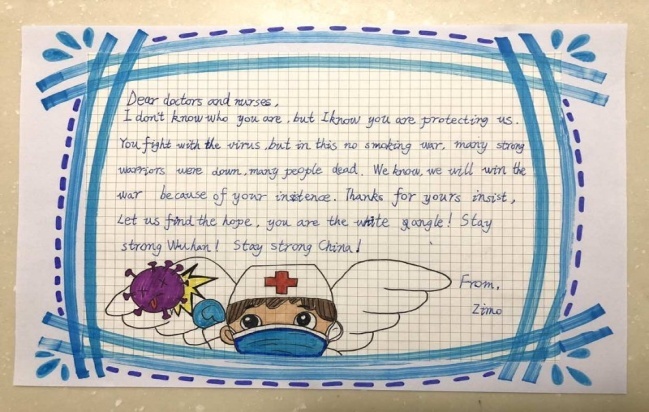 Dear doctors and nurses,
I don't know who you are, but I know you are protecting us.
You fight with the virus, but in this no smoking war, many strong
warriors were down, many people dead. We know, we will win the
war because of your insitence. Thanks for yours insist,
Let us find the hope, you are the white gangle! Stay
strong Wuhan! Stay strong China!
From,
Zimo